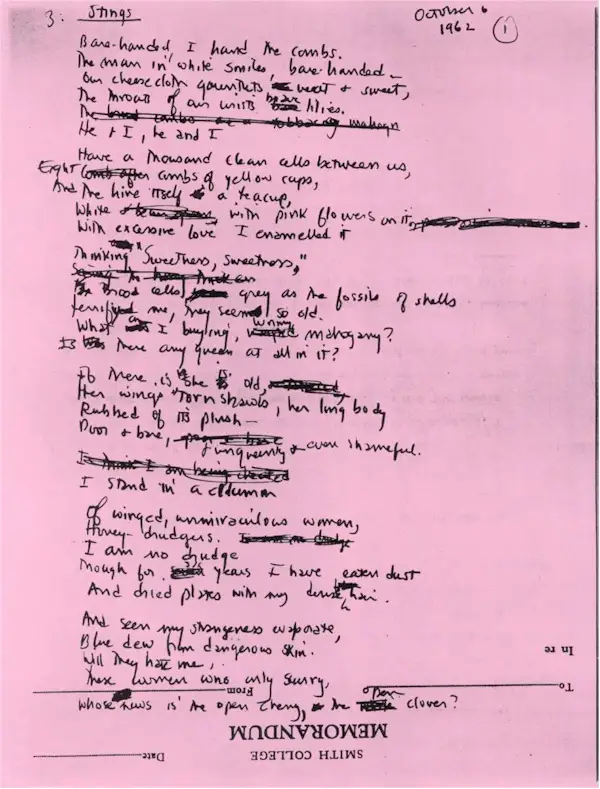 3. Stings
October 6
1962
1
Bare-handed, I hand the combs.
The man in white smiles, bare-handed—
Our cheesecloth gauntlets neat & sweet,
The throats of our wrists brave lilies.
He & I, he and I
Have a thousand clean cells between us,
Eight combs of yellow cups,
And the hive itself a teacup,
White with pink flowers on it,
With excessive love I enamelled it
Thinking "Sweetness, sweetness,"
Brood cells, grey as the fossils of shells
terrify me, they seem so old.
What am I buying, wormy mahogany?
Is there any queen at all in it?
If there is, she is old,
Her wings torn shawls, her long body
Rubbed of its plush—
Poor & bare, & unqueenly & even shameful.
I think I am being cheated
I stand in a column
Of winged, unmiraculous women,
Honey-drudgers.
I am no drudge
Though for years I have eaten dust
And dried plates with my dense hair.
And seen my strangeness evaporate,
Blue dew from dangerous skin.
Will they hate me,
These women who only scurry,
Whose news is the open cherry, the open clover?
In re
To
From
MEMORANDUM
SMITH COLLEGE
Date